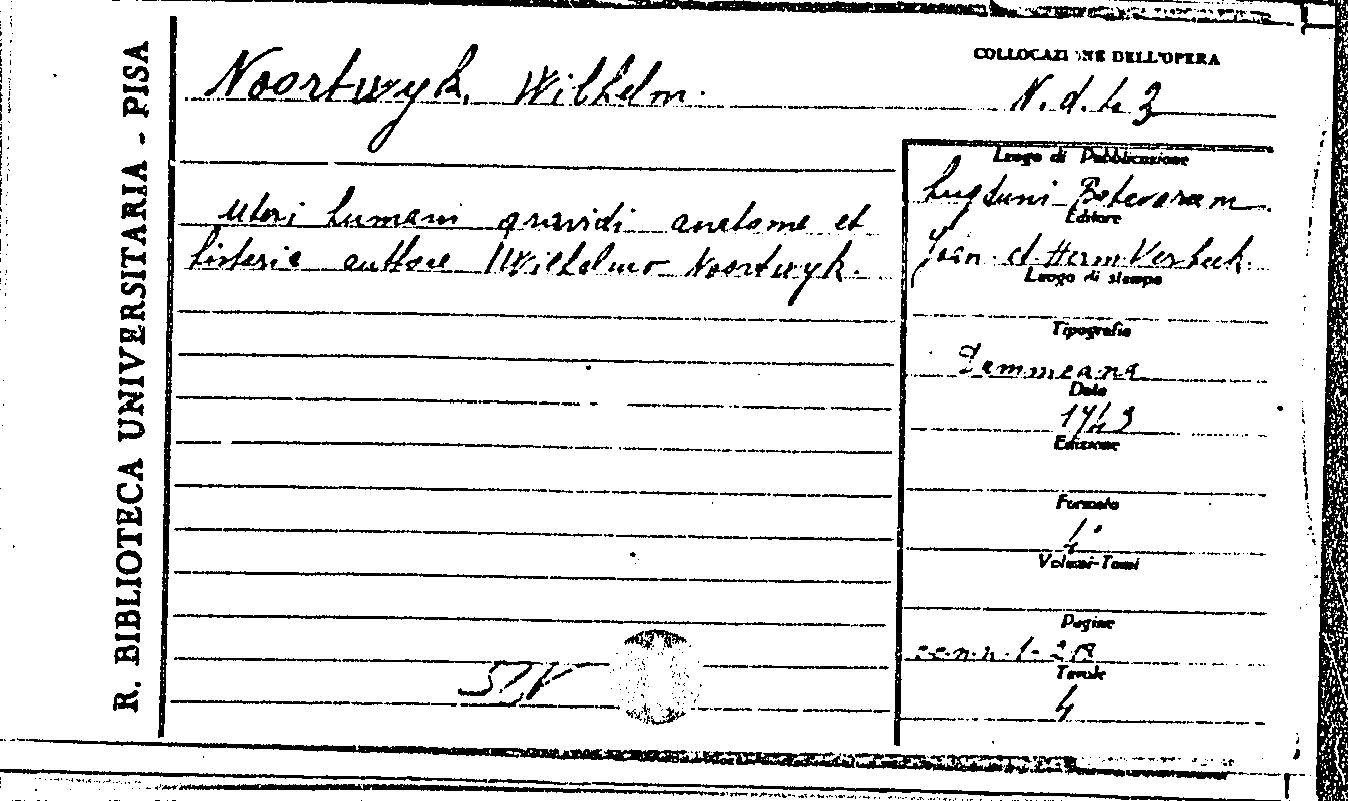 R. BIBLIOTECA UNIVERSITARIA - PISA
COLLOCAZIONE DELL'OPERA
Noortwyk, Wilhelm.
N. d. 4. 3
Luogo di Pubblicazione
Lugduni Batavoram
Uteri humani gravidi anatome et
historia authore Wilhelmo Noortwyk.
Editore
Joan. et Herm. Verbeek.
Luogo di stampa
Tipografia
Dammeana
Data
1743
Edizione
Formato
4°
Volumi-Tomi
Pagine
cc.n.n. 1-
Tavole
4